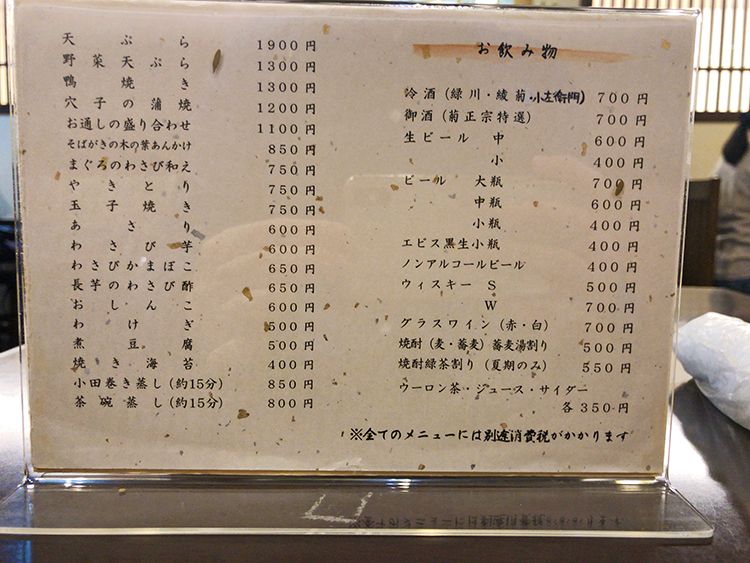 天ぷら 1900円
野菜天ぷら 1300円
鴨焼き 1300円
穴子の蒲焼 1200円
お通しの盛り合わせ 1100円
そばがきの木の葉あんかけ 850円
まぐろのわさび和え 750円
やきとり 750円
玉子焼き 750円
あさり 600円
わさび芋 600円
わさびかまぼこ 650円
長芋のわさび酢 650円
おしんこ 600円
わけぎ 500円
煮豆腐 500円
焼き海苔 400円
小田巻き蒸し(約15分) 850円
茶碗蒸し(約15分) 800円
お飲み物
冷酒(緑川・綾菊・小左衛門) 700円
御酒(菊正宗特選) 700円
生ビール 中 600円
小 400円
ビール 大瓶 700円
中瓶 600円
小瓶 400円
エビス黒生小瓶 400円
ノンアルコールビール 400円
ウィスキー S 500円
W 700円
グラスワイン(赤・白) 700円
焼酎(麦・蕎麦)蕎麦湯割り 500円
焼酎緑茶割り(夏期のみ) 550円
ウーロン茶・ジュース・サイダー
各350円
※全てのメニューには別途消費税がかかります